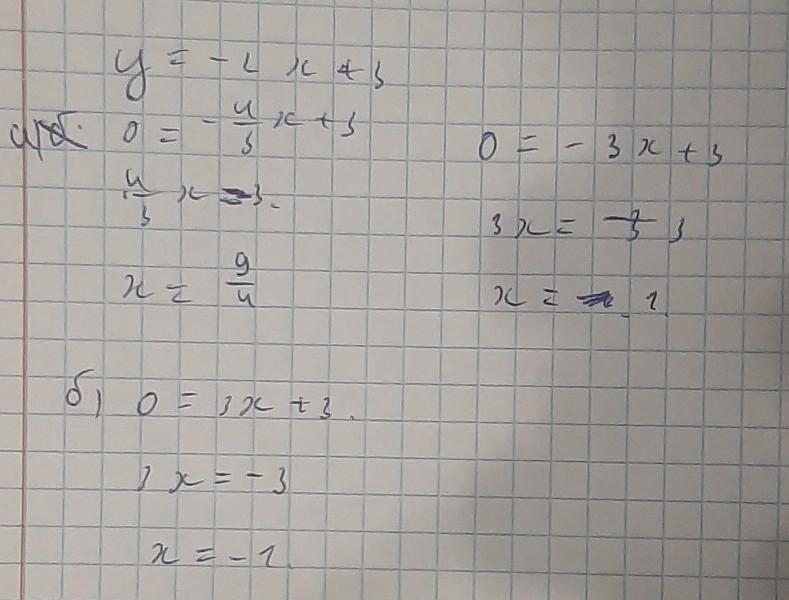 y = -2x + 3
0 = -4/3 x + 3
4/3 x = 3.
x = 9/4
0 = -3x + 3
3x = 3
x = 1
б) 0 = 3x + 3.
3x = -3
x = -1.